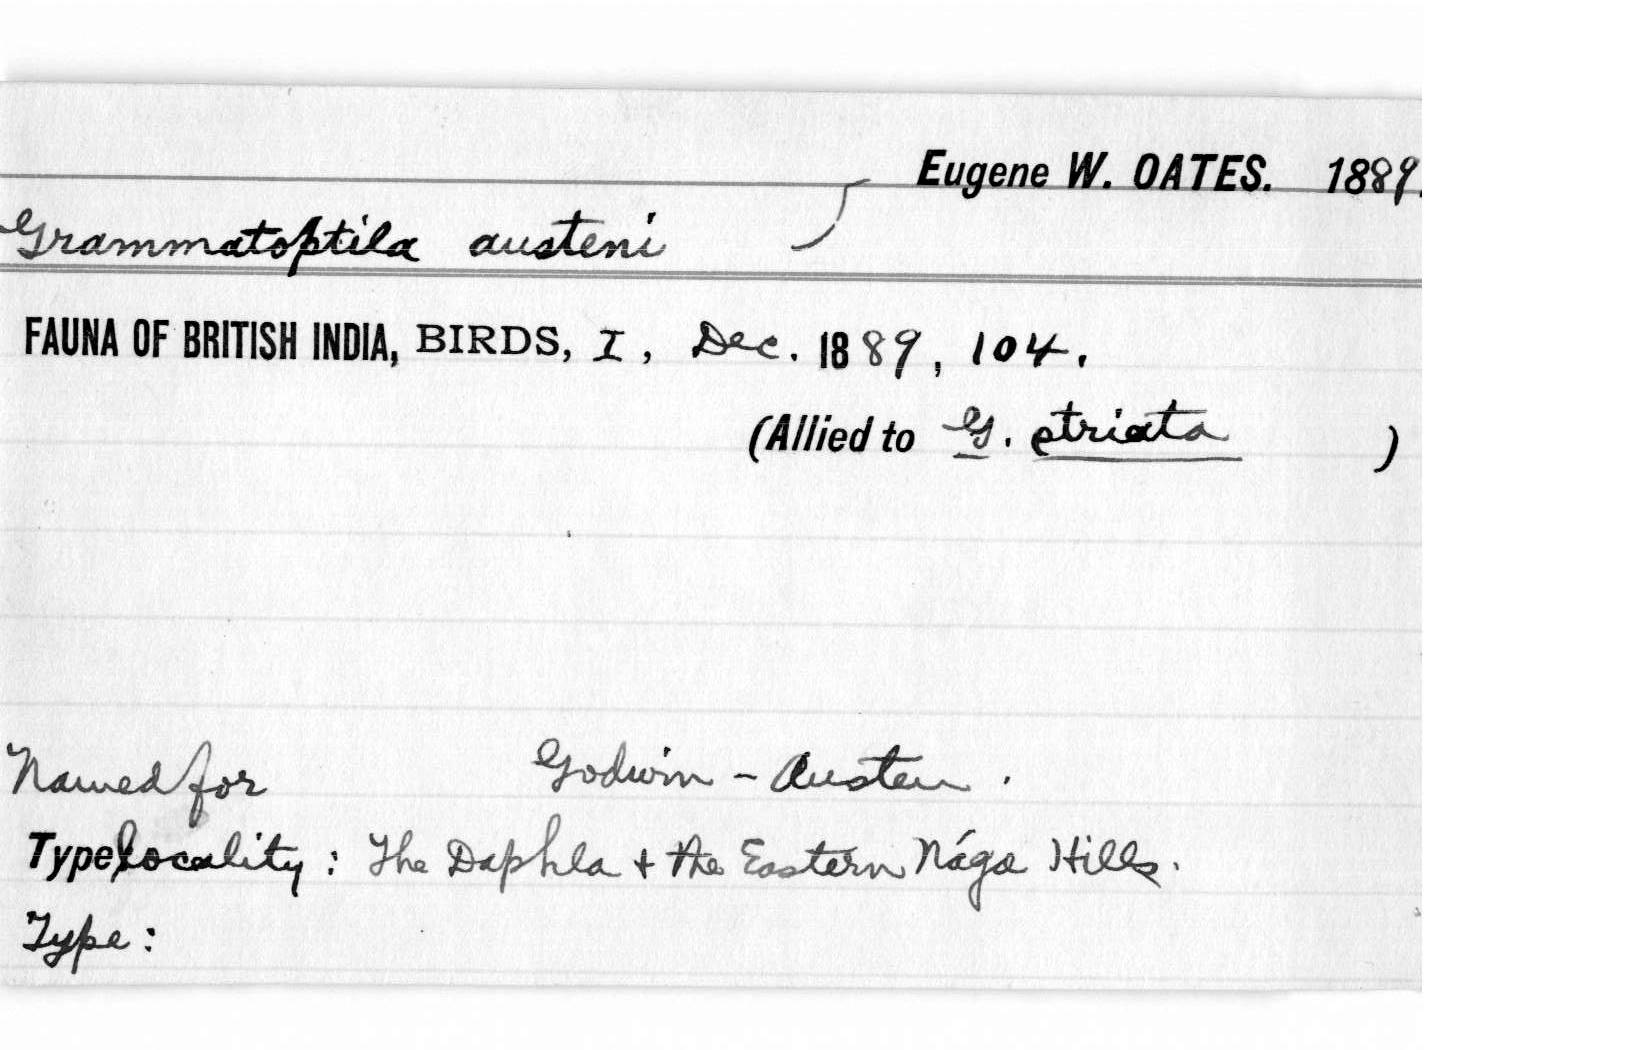 Eugene W. OATES. 1889.
Grammatoptila austeni
FAUNA OF BRITISH INDIA, BIRDS, I, Dec. 1889, 104.
(Allied to G. striata )
Named for Godwin-Austen.
Type locality: The Daphla + the Eastern Nága Hills.
Type: